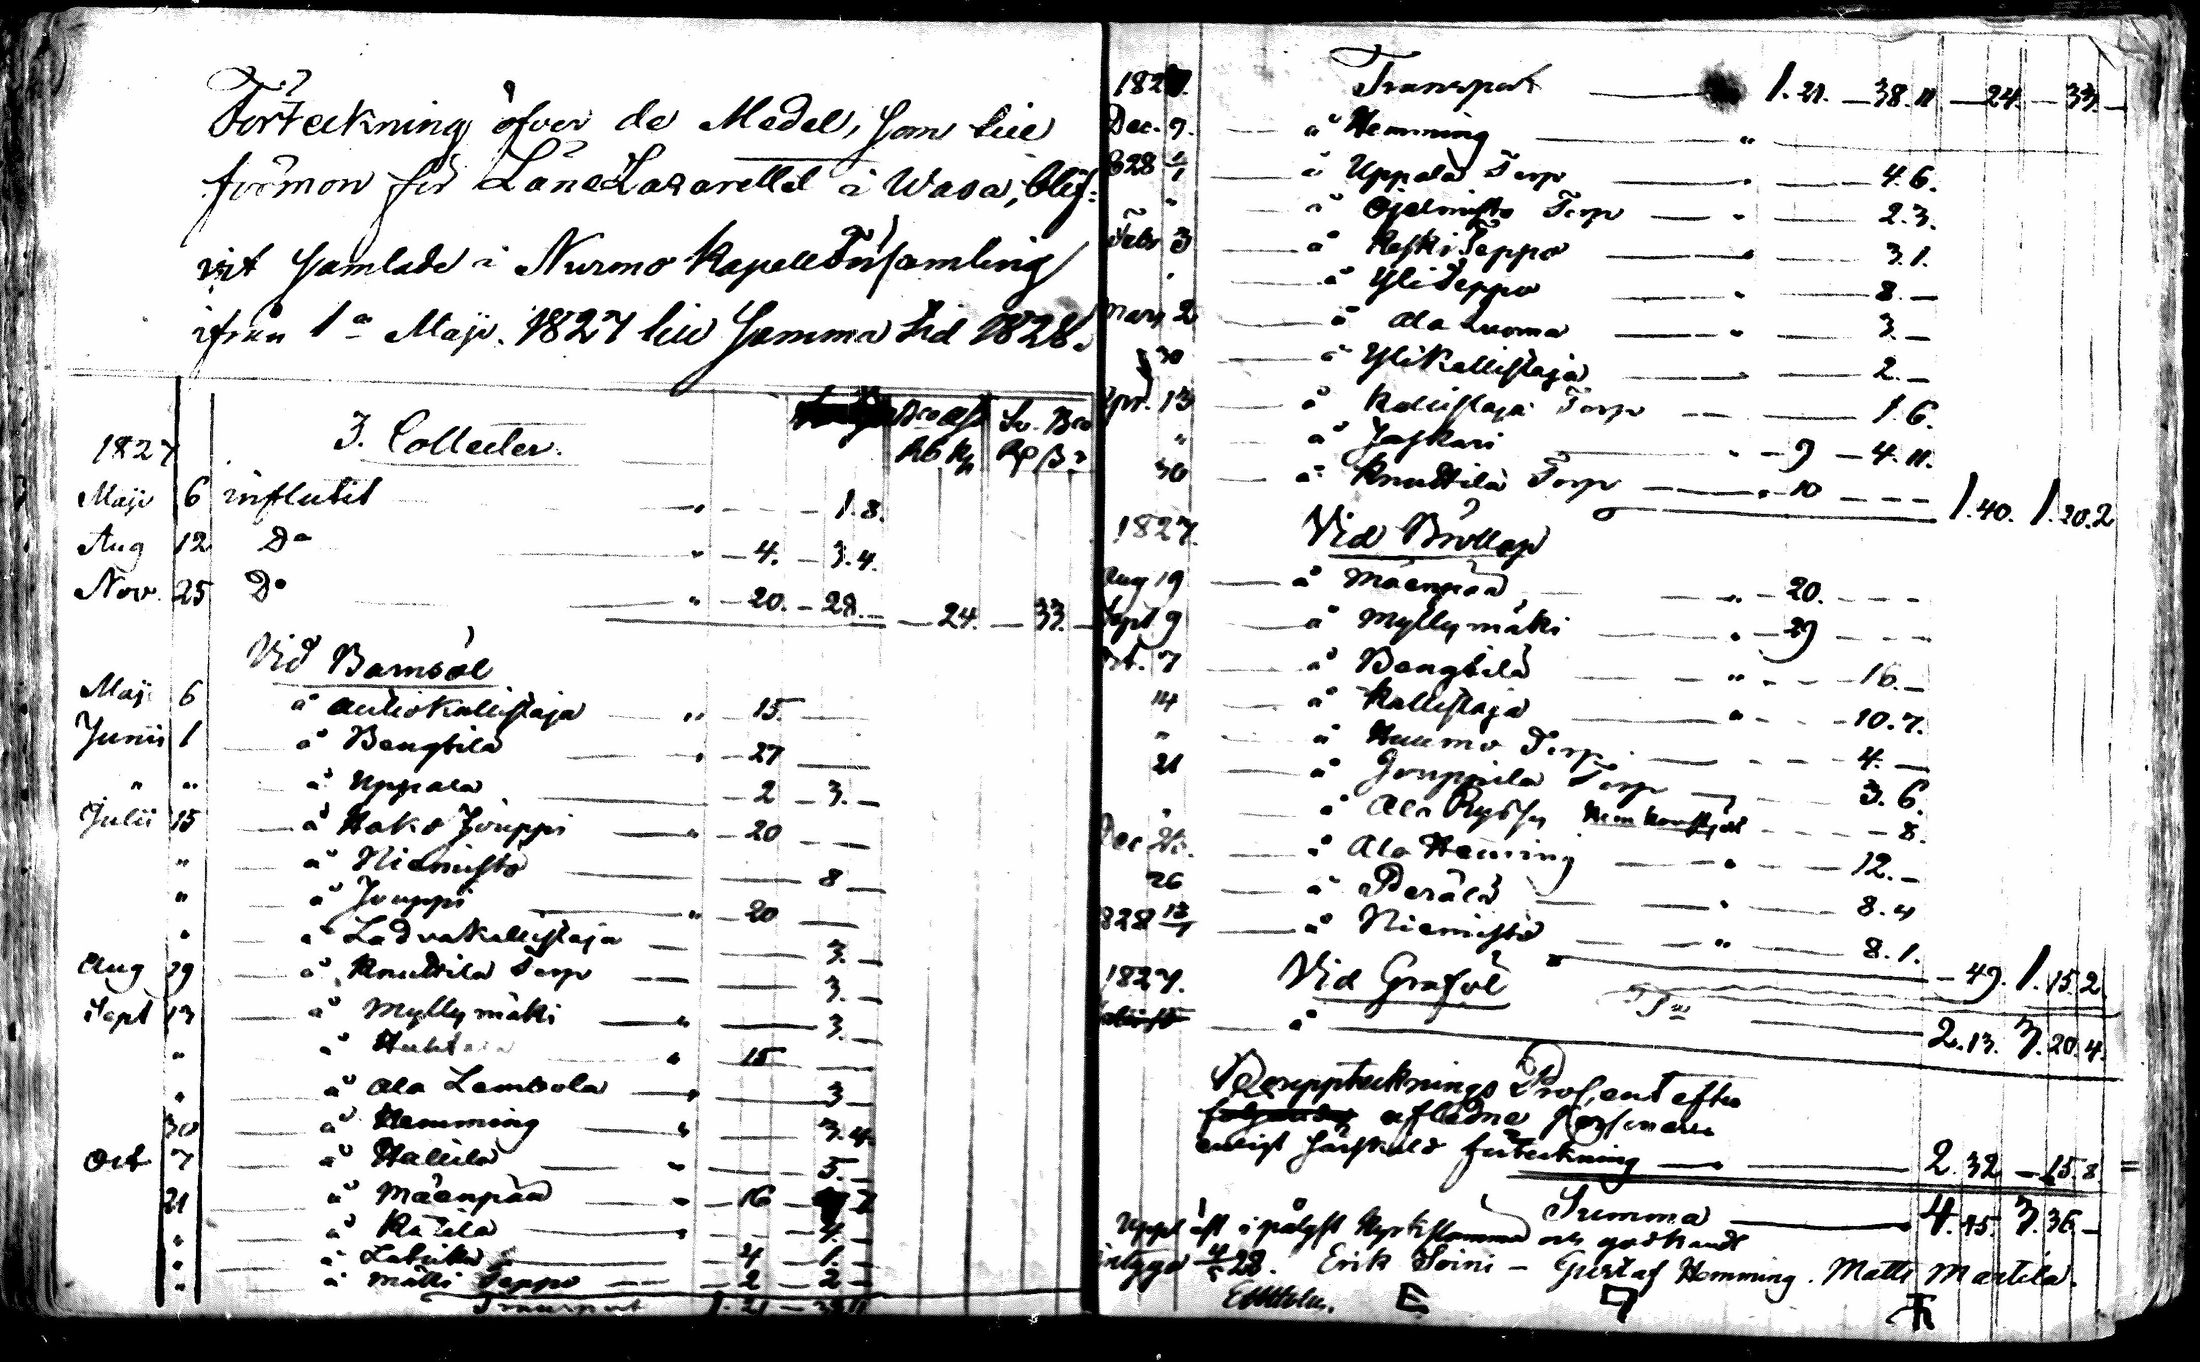 Förteckning öfver de Medel, som till
förmon för LäneLazarettet i Wasa, blif-
vit samlade i Nurmo Kapell Församling
ifrån 1a Maji. 1827 till samma tid 1828.
1827 I. Collecter. Rb Kp
Maji 6 influtit " 1.8.
Aug 12 Do " 4. 3.4.
Nov. 25 Do " 20. 28. 24. 33.
Vid Barnsöl
Maji 6 å Autiokallistaja " 15.
Junii 1 å Bengtila " 27
" " å Uppala 2 3.
Julii 15 å Hako Jouppi " 20
" å Niemistö 8
" å Jouppi " 20
" å Ladvakallistaja 3.
Aug 29 å Knuttila Torp 3.
Sept 13 å Myllymäki " 3.
" å " 15
" å Ala Lembola " 3
30 å Hemming " 3.4.
Oct 7 å Hallila " 5.
21 å Mäenpää " 16
" å Kätila 4.
" å Latuka 4 1.
" å Matti Seppo 2 2
Transport 1. 21 38 11
1827. Transport 1. 21. 38. 11 24. 33.
Dec. 9. å Hemming "
828 å Uppala Torp " 4. 6.
" å Torp " 2. 3.
Febr 3 å Keski Seppo " 3. 1.
" å Yliseppo " 8.
Mars 2 å Ala Luoma " 3.
30 å Ylikallistaja " 2.
Apr. 13 å Kallistaja Torp 1. 6.
" å Jaskari " 9 4. 11.
30 å Knuttila Torp " 10 1. 40. 1. 20. 2
1827. Vid Bröllop
Aug 19 å Mäenpää " 20.
Sept 9 å Myllymäki " 29
Oct. 7 å Bengtila " 16.
14 å Kallistaja " 10. 7.
" å Torp 4.
21 å Jouppila Torp 3. 6.
" å Ala Hemkomstöl 8.
Dec 26. å Ala Heming " 12.
26 å Perälä " 8. 4
828 13/1 å Niemistö " 8. 1. 49. 1. 15. 2
1827. Vid Graföl
å 2. 13. 7. 20. 4.
Berupptecknings Procent efter
aflidne Personer
enligt särskild förteckning 2. 32 15. 8
Summa 4. 45. 7. 36.
Uppläst i pålyst Kyrkstämma och godkändt
intyga 4/5 28. Erik Soini – Gustaf Hemming. Matts Martila.